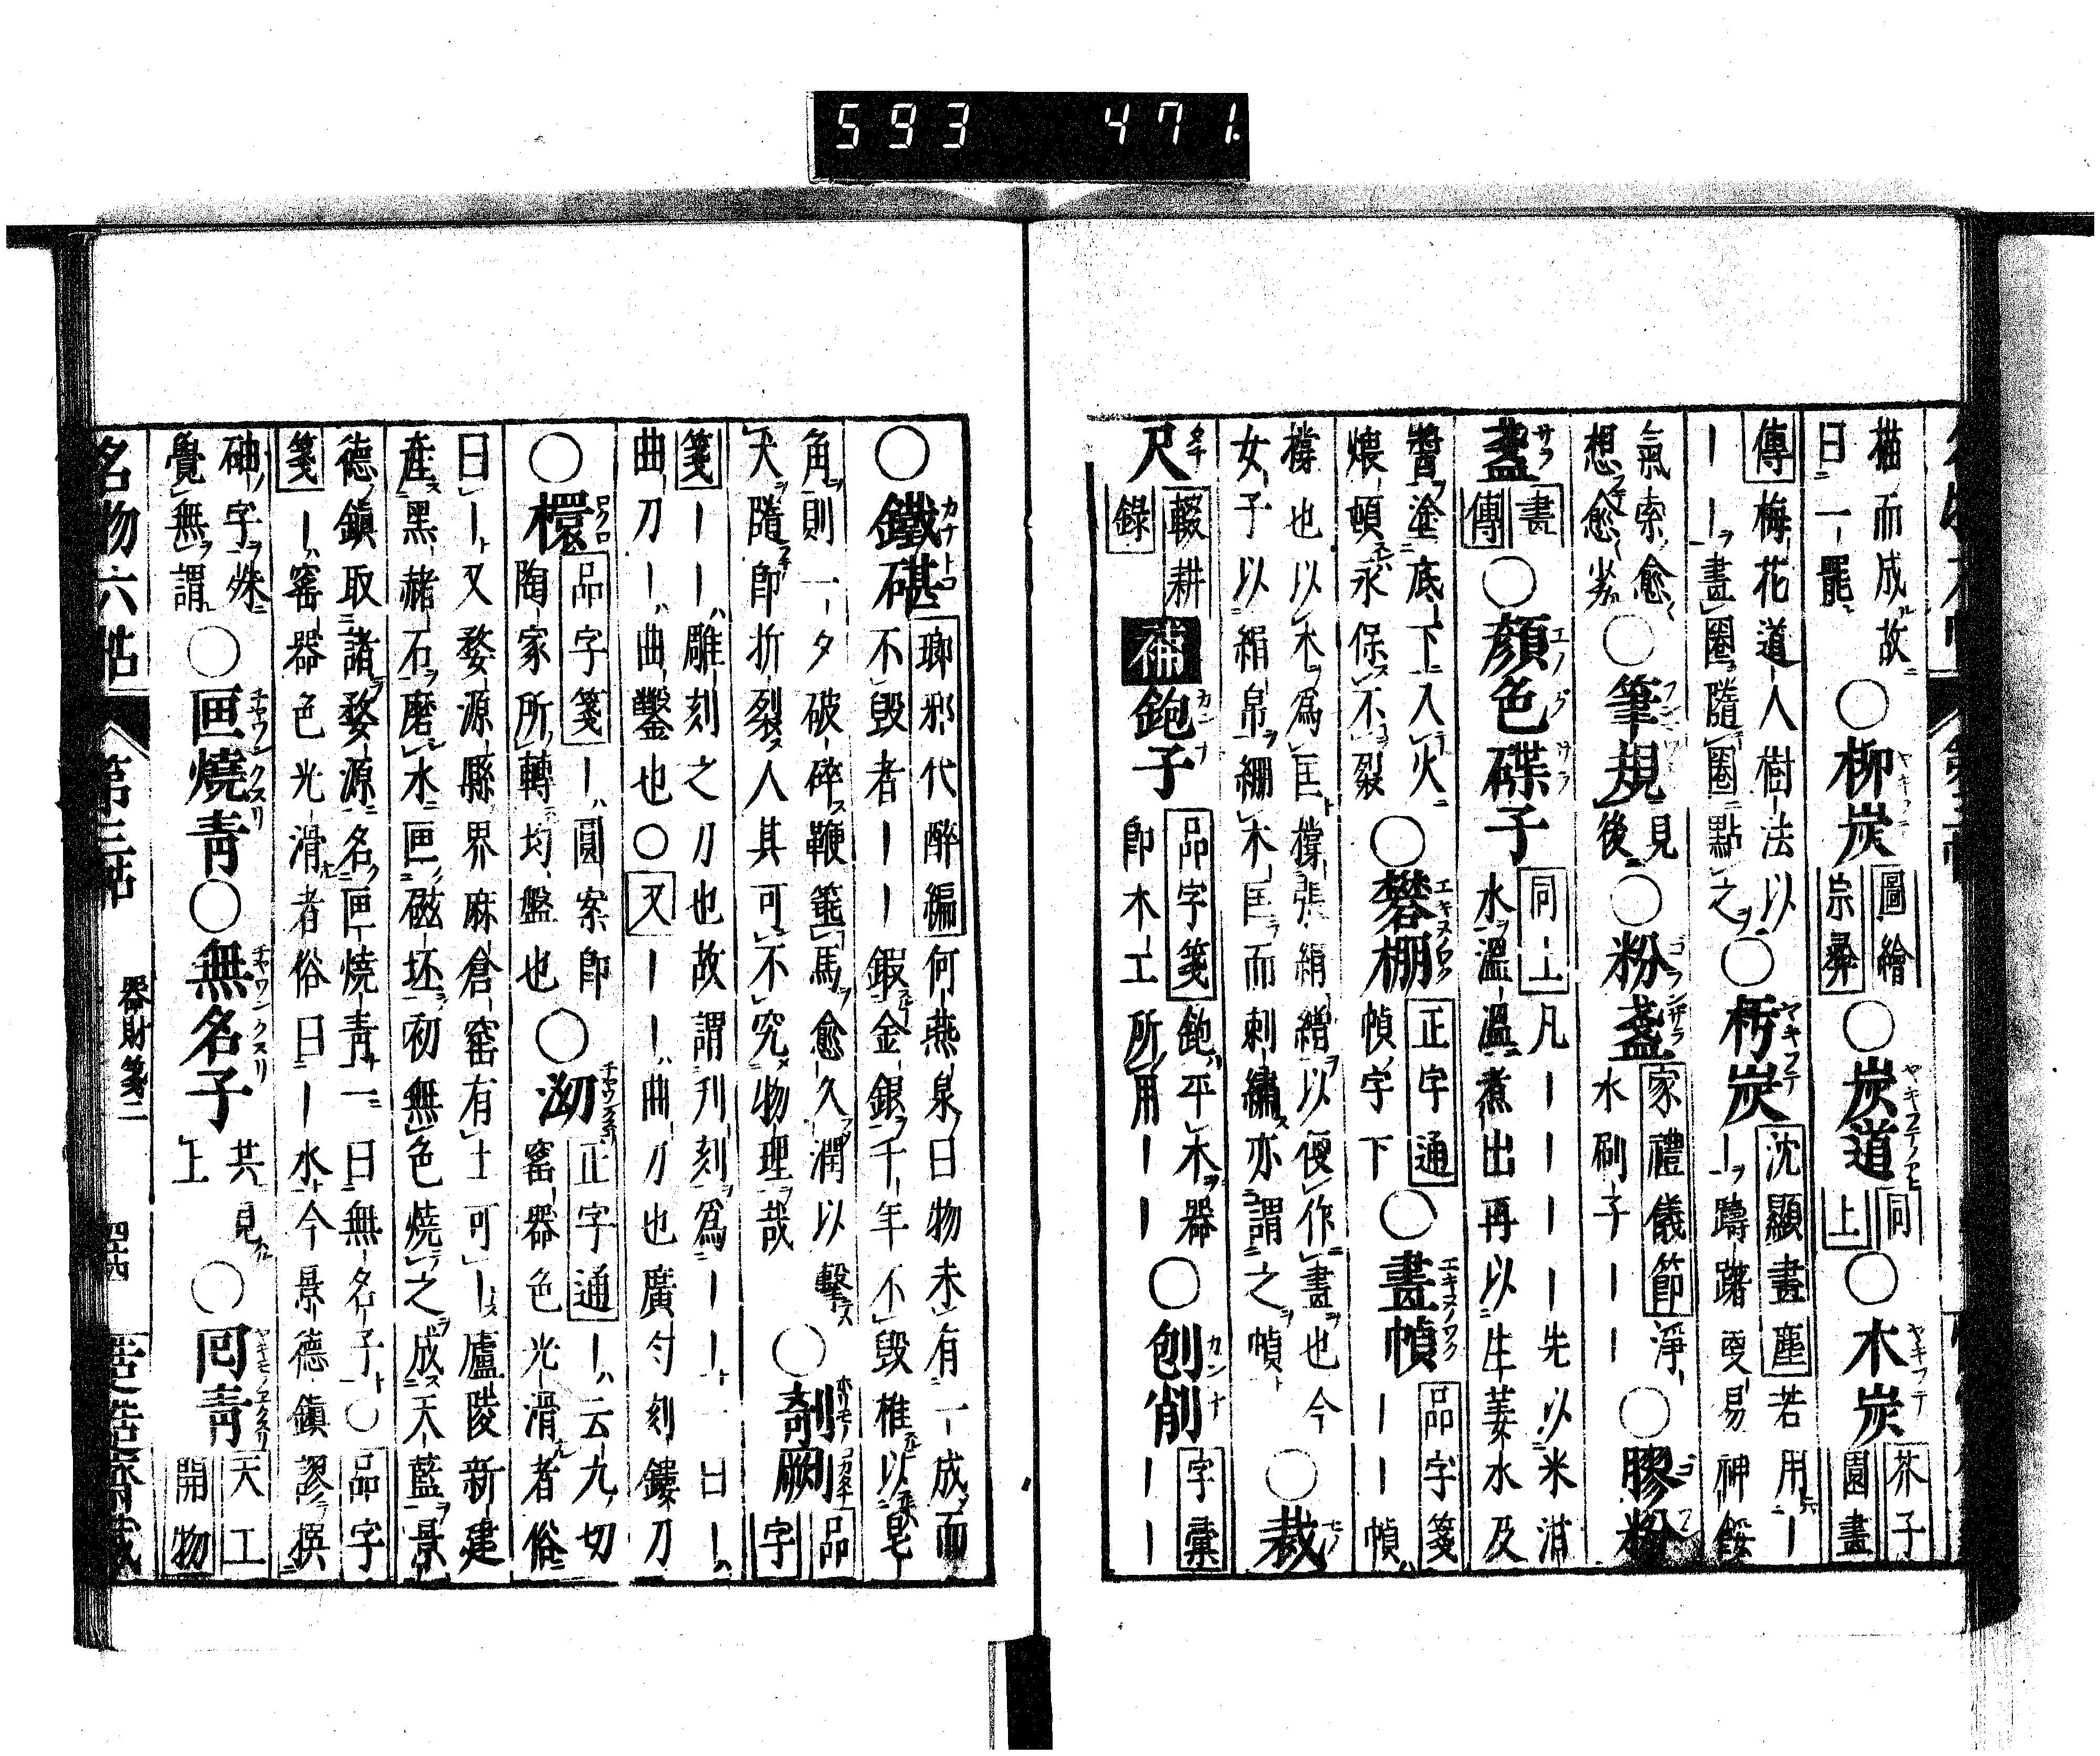 593 471.
描而成故
曰一罷
○柳炭 圖繪宗彝 ○炭道 同上 ○木炭 芥子園畫
傳 梅花道人樹法以
ーー畫圈隨圈點之 ○朽炭 沈顥畫麈 若用ー
ー躊躇更易神餒
氣索愈
想愈劣 ○筆規 見後 ○粉盞 家禮儀節 淨
水刷子ーー ○膠粉
盞 畫傳 ○顏色碟子 同上 凡ーーーー先以米泔
水溫溫煮出再以生姜水及
醬塗底下入火
煨頓永保不裂 ○礬棚 正字通
幀字下 ○畫幀 品字箋
ーー幀
橕也以木爲匡橕張絹繒以便作畫也今
女子以絹帛繃木匡而刺繡亦謂之幀 ○裁
尺 輟耕錄 補 鉋子 品字箋 鉋平木器
即木工所用ーー ○刨削 字彙
ーー
○鐵碪 瑯邪代醉編 何燕泉曰物未有一成而
不毀者ーー鍜金銀千年不毀椎以皂
角則一夕破碎鞭箠馬愈久潤以擊
犬隨卽折裂人其可不究物理哉 ○剞劂 品字
箋 ーー雕刻之刀也故謂刋刻爲ーー一曰ー
曲刀ー曲鑿也○又ーー曲刀也廣匀刻鏤刀
○檈 品字箋 ー圓案卽
陶家所轉均盤也 ○泑 正字通 ー云九切
窰器色光滑者俗
曰ー又婺源縣界麻倉窰有土可ー廬陵新建
產黑赭石磨水畫磁坯初無色燒之成天藍景
德鎮取諸婺源名畫燒青一曰無名子○品字
箋 ー窰器色光滑者俗曰ー水今景德鎮謬誤
䄂字殊
覺無謂 ○畫燒青 ○無名子 共見
上 ○回青 天工開物
名物六帖 第三帖 器財箋二